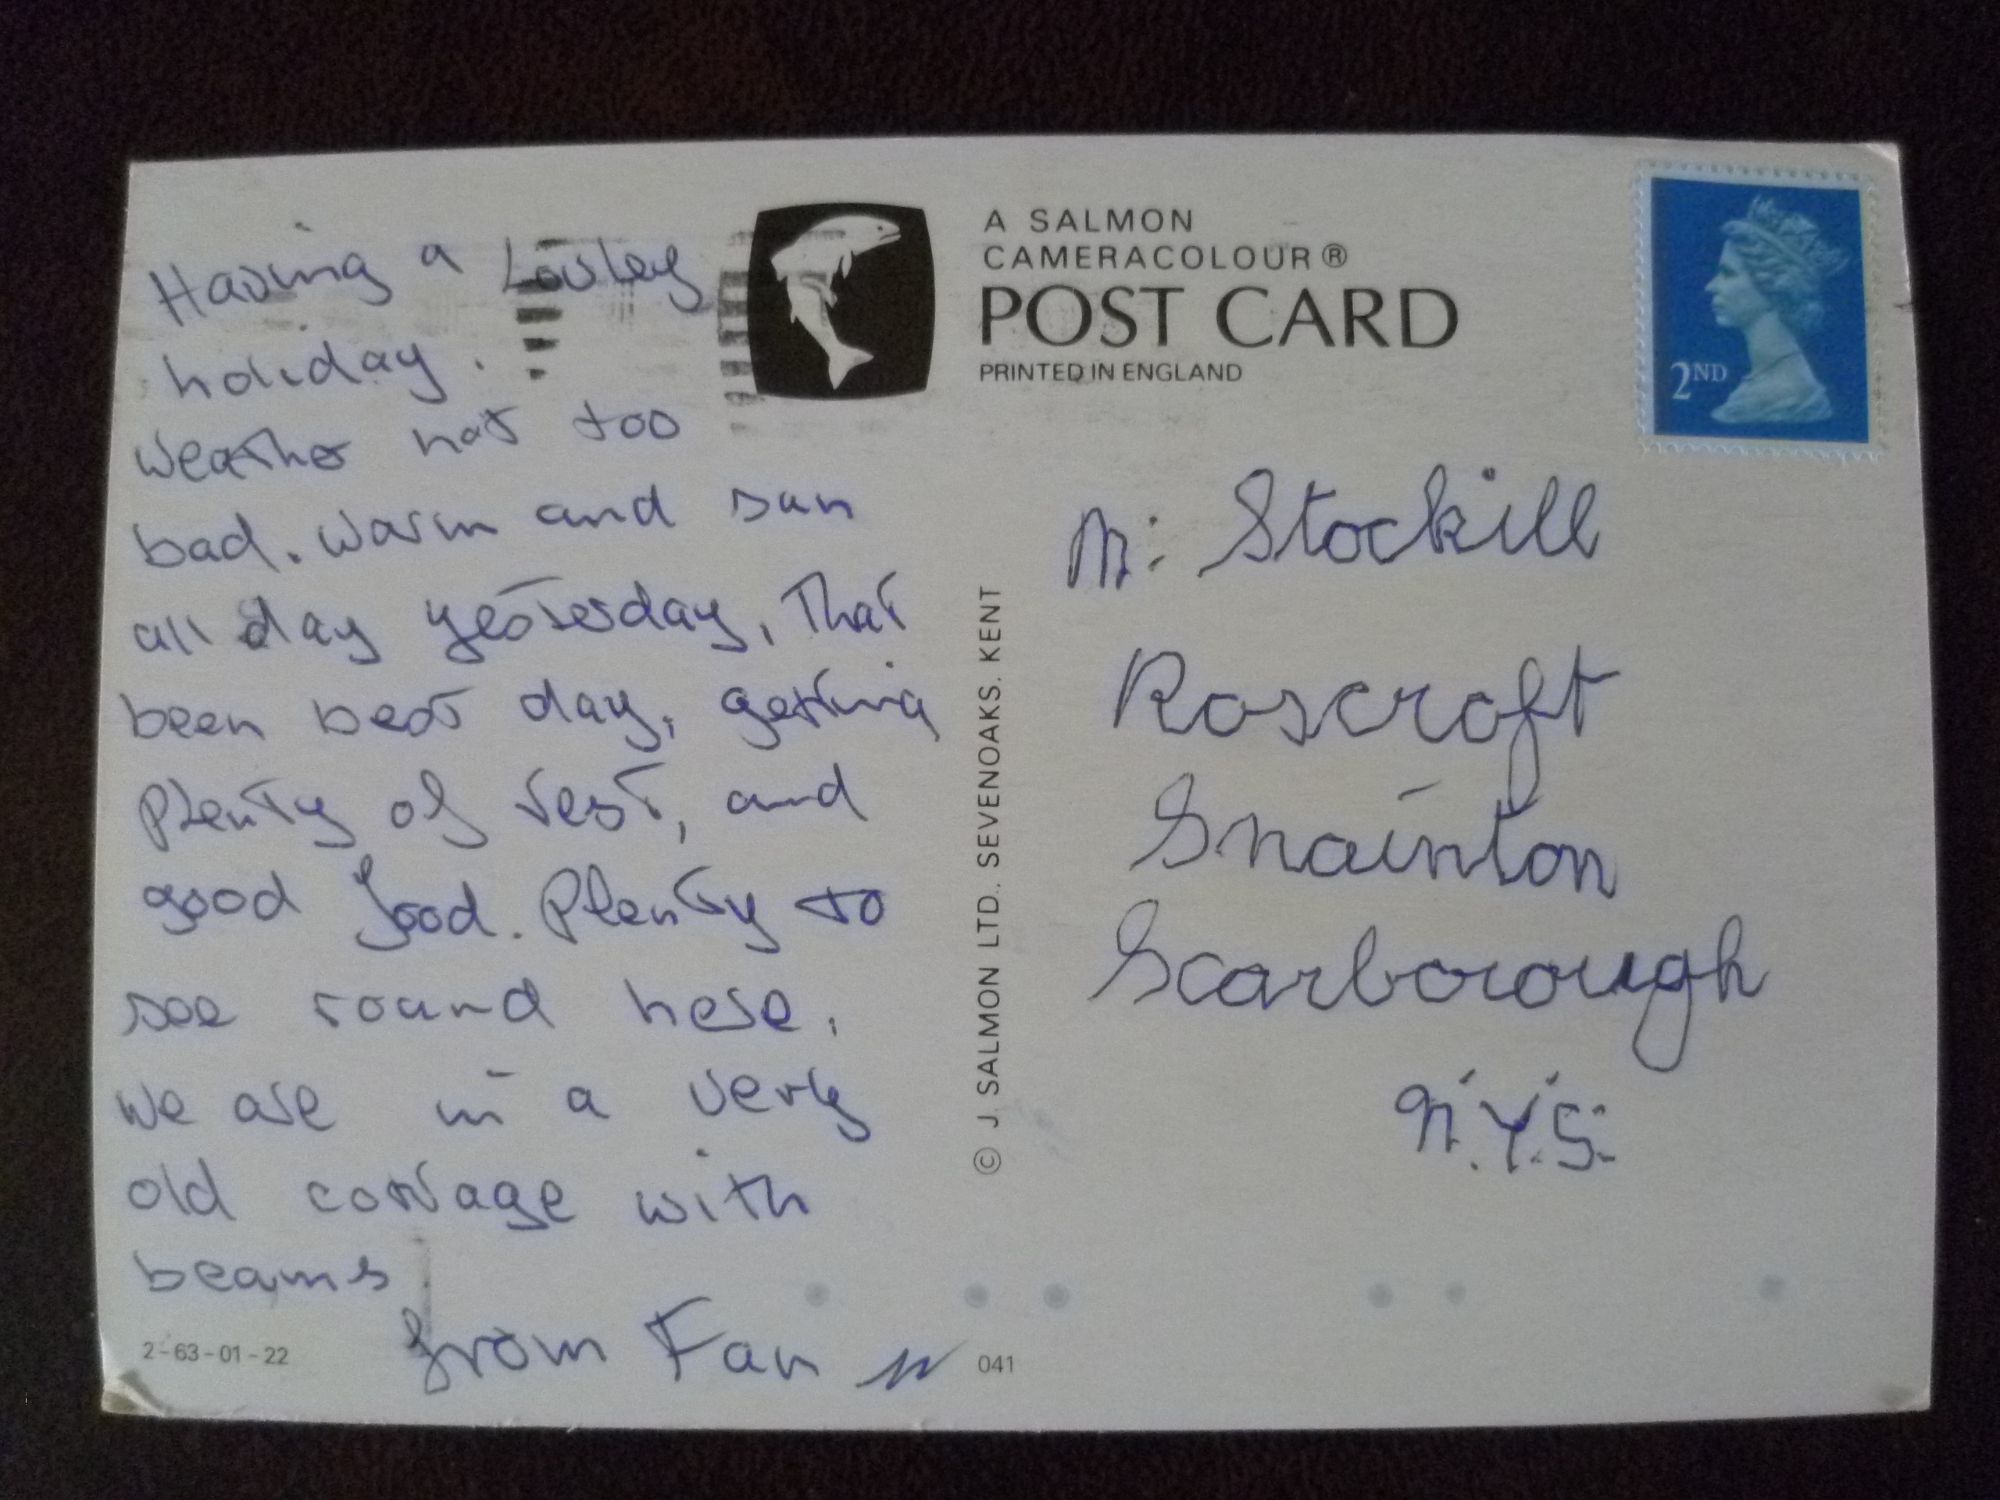 Having a Lovley
holiday.
weather not too
bad. warm and sun
all day yesterday, that
been best day, getting
plenty of rest, and
good food. Plenty to
see round here.
we are in a very
old cottage with
beams
from Fan
2-63-01-22
A SALMON
CAMERACOLOUR®
POST CARD
PRINTED IN ENGLAND
© J. SALMON LTD. SEVENOAKS. KENT
041
2ND
M: Stockill
Roscroft
Snainton
Scarborough
N.Y.S.